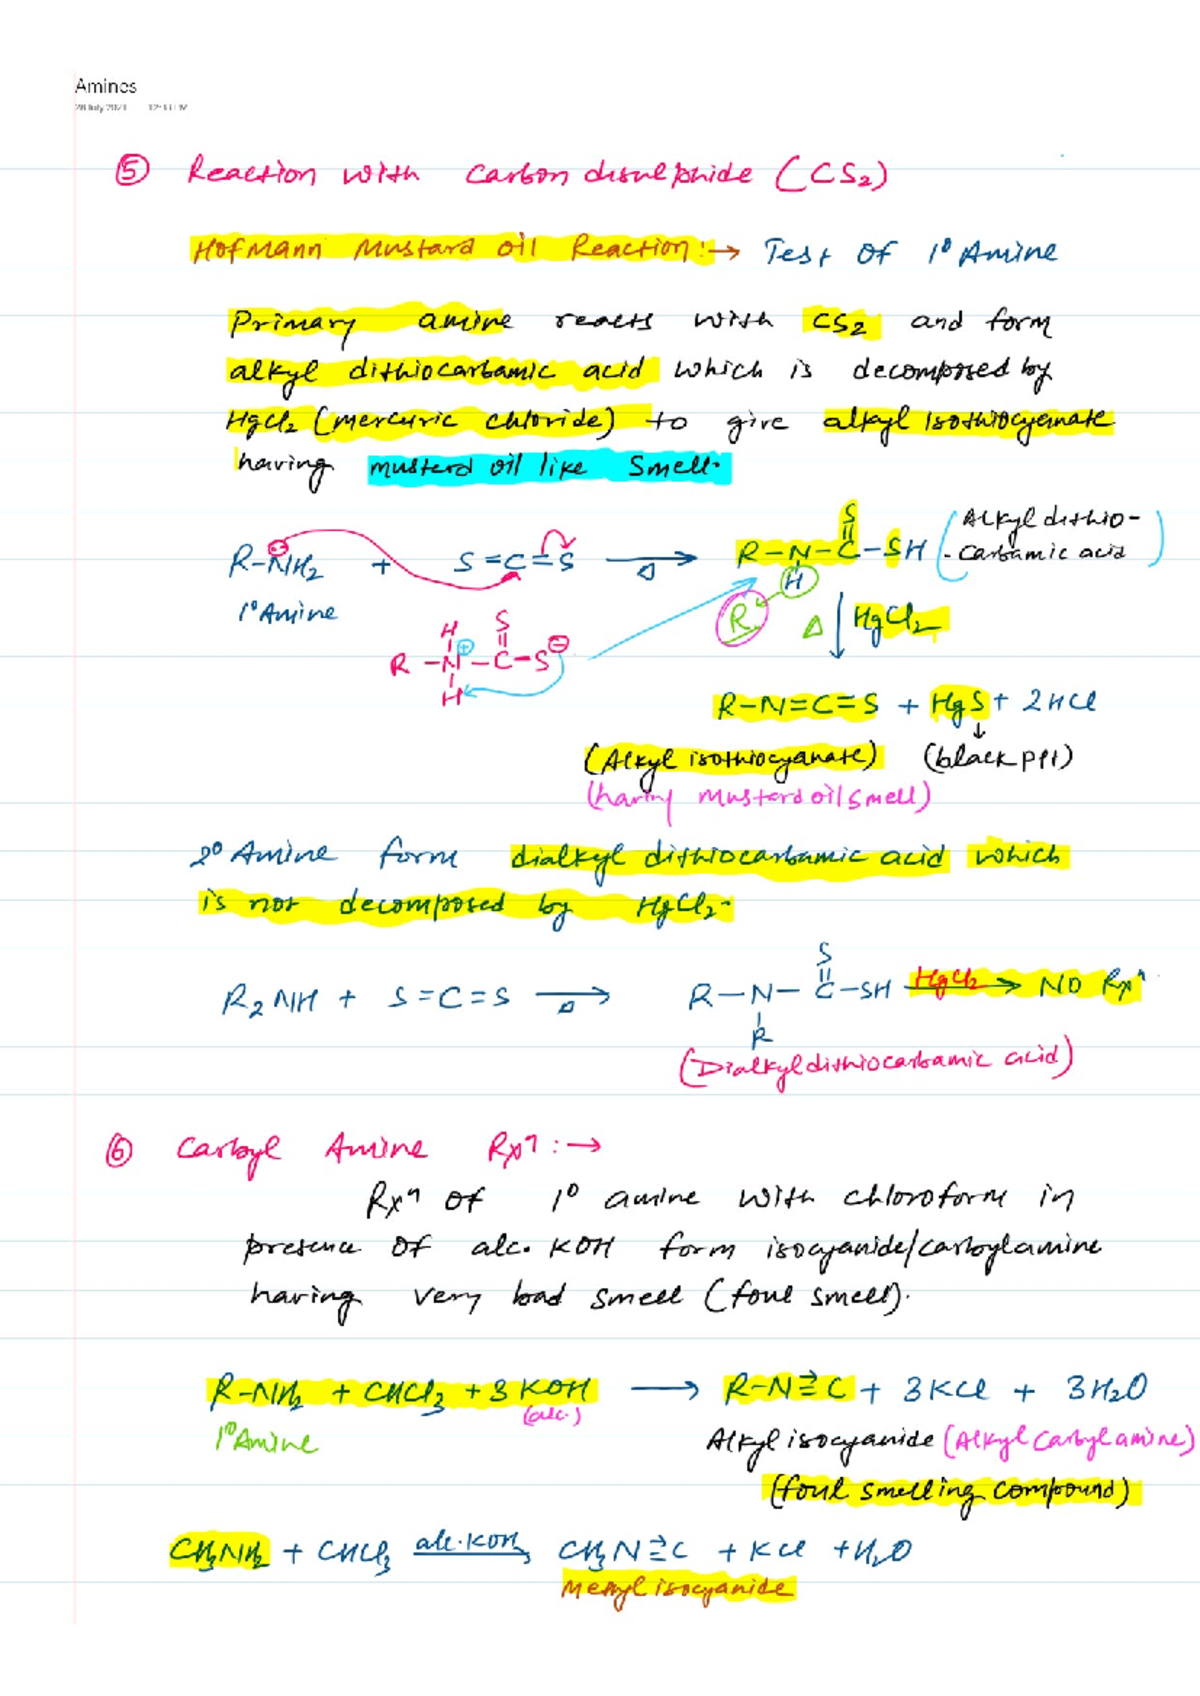 Amines
28 July 2021 12:33 PM
⑤ Reaction with Carbon disulphide (CS2)
Hofmann Mustard oil Reaction:→ Test of 1° Amine
Primary amine reacts with CS2 and form
alkyl dithiocarbamic acid which is decomposed by
HgCl2 (mercuric chloride) to give alkyl isothiocyanate
having musterd oil like smell.
R-NH2 + S=C=S →Δ R-N-C-SH (Alkyl dithio-
-Carbamic acid)
S
H
1° Amine
R
Δ HgCl2
H S
R-N⊕-C-S⊖
H
R-N=C=S + HgS + 2HCl
(Alkyl isothiocyanate) (black ppt)
(having Mustard oil smell)
2° Amine form dialkyl dithiocarbamic acid which
is not decomposed by HgCl2.
S
R2NH + S=C=S →Δ R-N-C-SH HgCl2→ NO Rxn
R
(Dialkyldithiocarbamic acid)
⑥ Carbyl Amine Rxn:→
Rxn of 1° amine with chloroform in
presence of alc. KOH form isocyanide/carbylamine
having very bad smell (foul smell).
R-NH2 + CHCl3 + 3KOH → R-N≡C + 3KCl + 3H2O
(alc.)
1° Amine
Alkyl isocyanide (Alkyl Carbylamine)
(foul smelling compound)
CH3NH2 + CHCl3 alc.KOH→ CH3N≡C + KCl + H2O
Methyl isocyanide